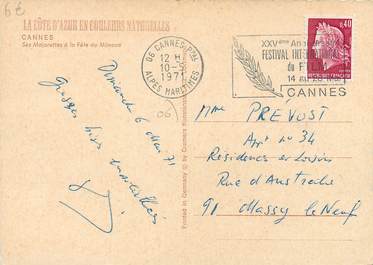 6 €
LA CÔTE D'AZUR EN COULEURS NATURELLES
CANNES
Ses Majorettes à la Fête du Mimosa
06 CANNES PPAL
12 H
10-5
1971
ALPES MARITIMES
XXVème
FESTIVAL INTERNATIONAL
du FILM
14 au
CANNES
0,40
Dimanche 6 Mai 71
Grosses bises
06
Printed in Germany
Mme PRÉVOST
Appt no 34
Résidence et Loisirs
Rue d'Autriche
91 Massy le Neuf